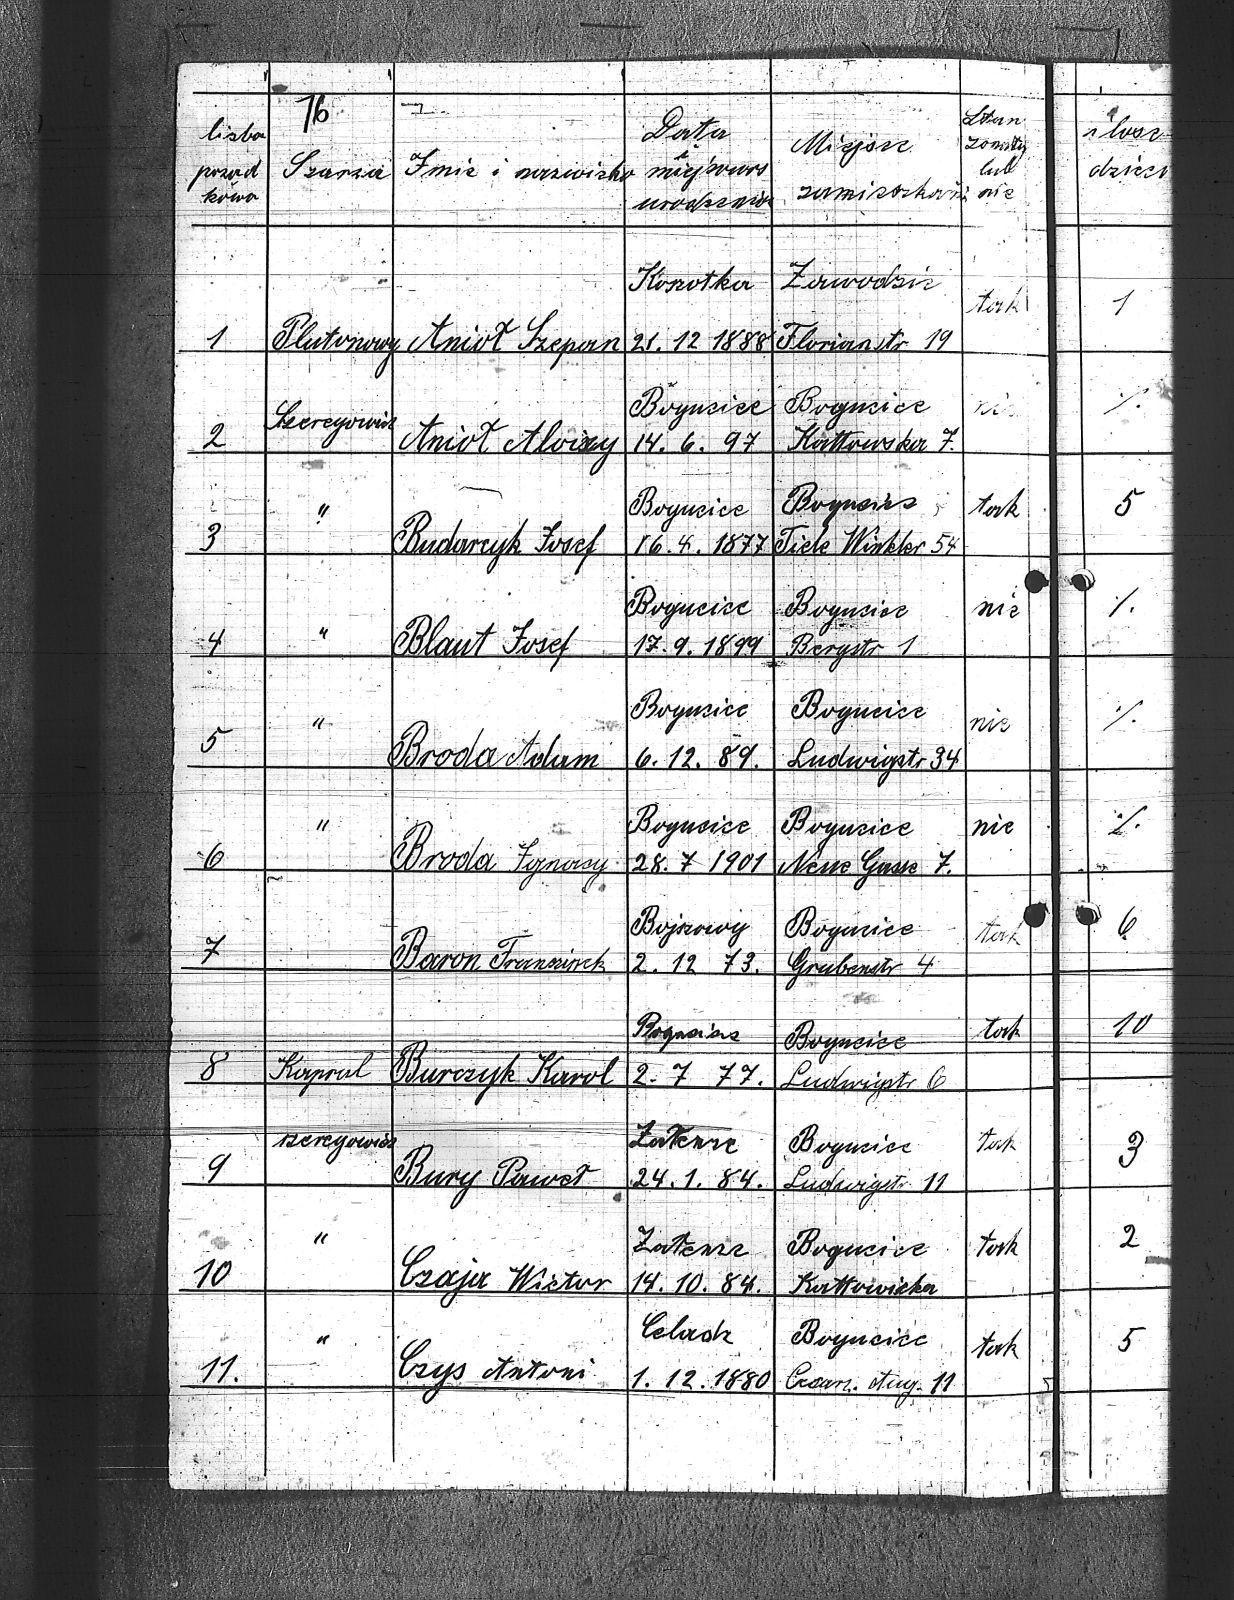 76
lizba porzad kowa | Szarza | Imie i nazwisko | Data i miejscows urodzenia | Miejsce zamieszkań | Stan zonaty lub nie | ilosc dzieci
Korotka Zawodzie tak 1
1 Plutonowy Anioł Szepan 21. 12 1888 Florianstr 19
Szeregowiec Bogucice Bogucice nie %
2 Anioł Aloizy 14. 6. 97 Kattowska 7.
" Bogucice Bogucice tak 5
3 Budarcyk Josef 16. 4. 1877 Tiele Winkler 54
Bogucice Bogucice nie %
4 " Blaut Josef 17. 9. 1899 Bergstr 1
" Bogucice Bogucice nie %
5 Broda Adam 6. 12. 89. Ludwigstr 34
" Bogucice Bogucice nie %
6 Broda Ignacy 28. 7 1901 Neue Gasse 7.
Bojszowy Bogucice tak 6
7 Baron Franzisek 2. 12 73. Grubenstr 4
Bogucice Bogucice tak 10
8 Kapral Burczyk Karol 2. 7 77. Ludwigstr 6
szeregowiec Załenze Bogucice tak 3
9 Bury Paweł 24. 1. 84. Ludwigstr 11
" Załenze Bogucice tak 2
10 Czaja Wictor 14. 10. 84. Kattowicka
" Celadz Bogucice tak 5
11. Czys Antoni 1. 12. 1880 Czarn. Aug. 11